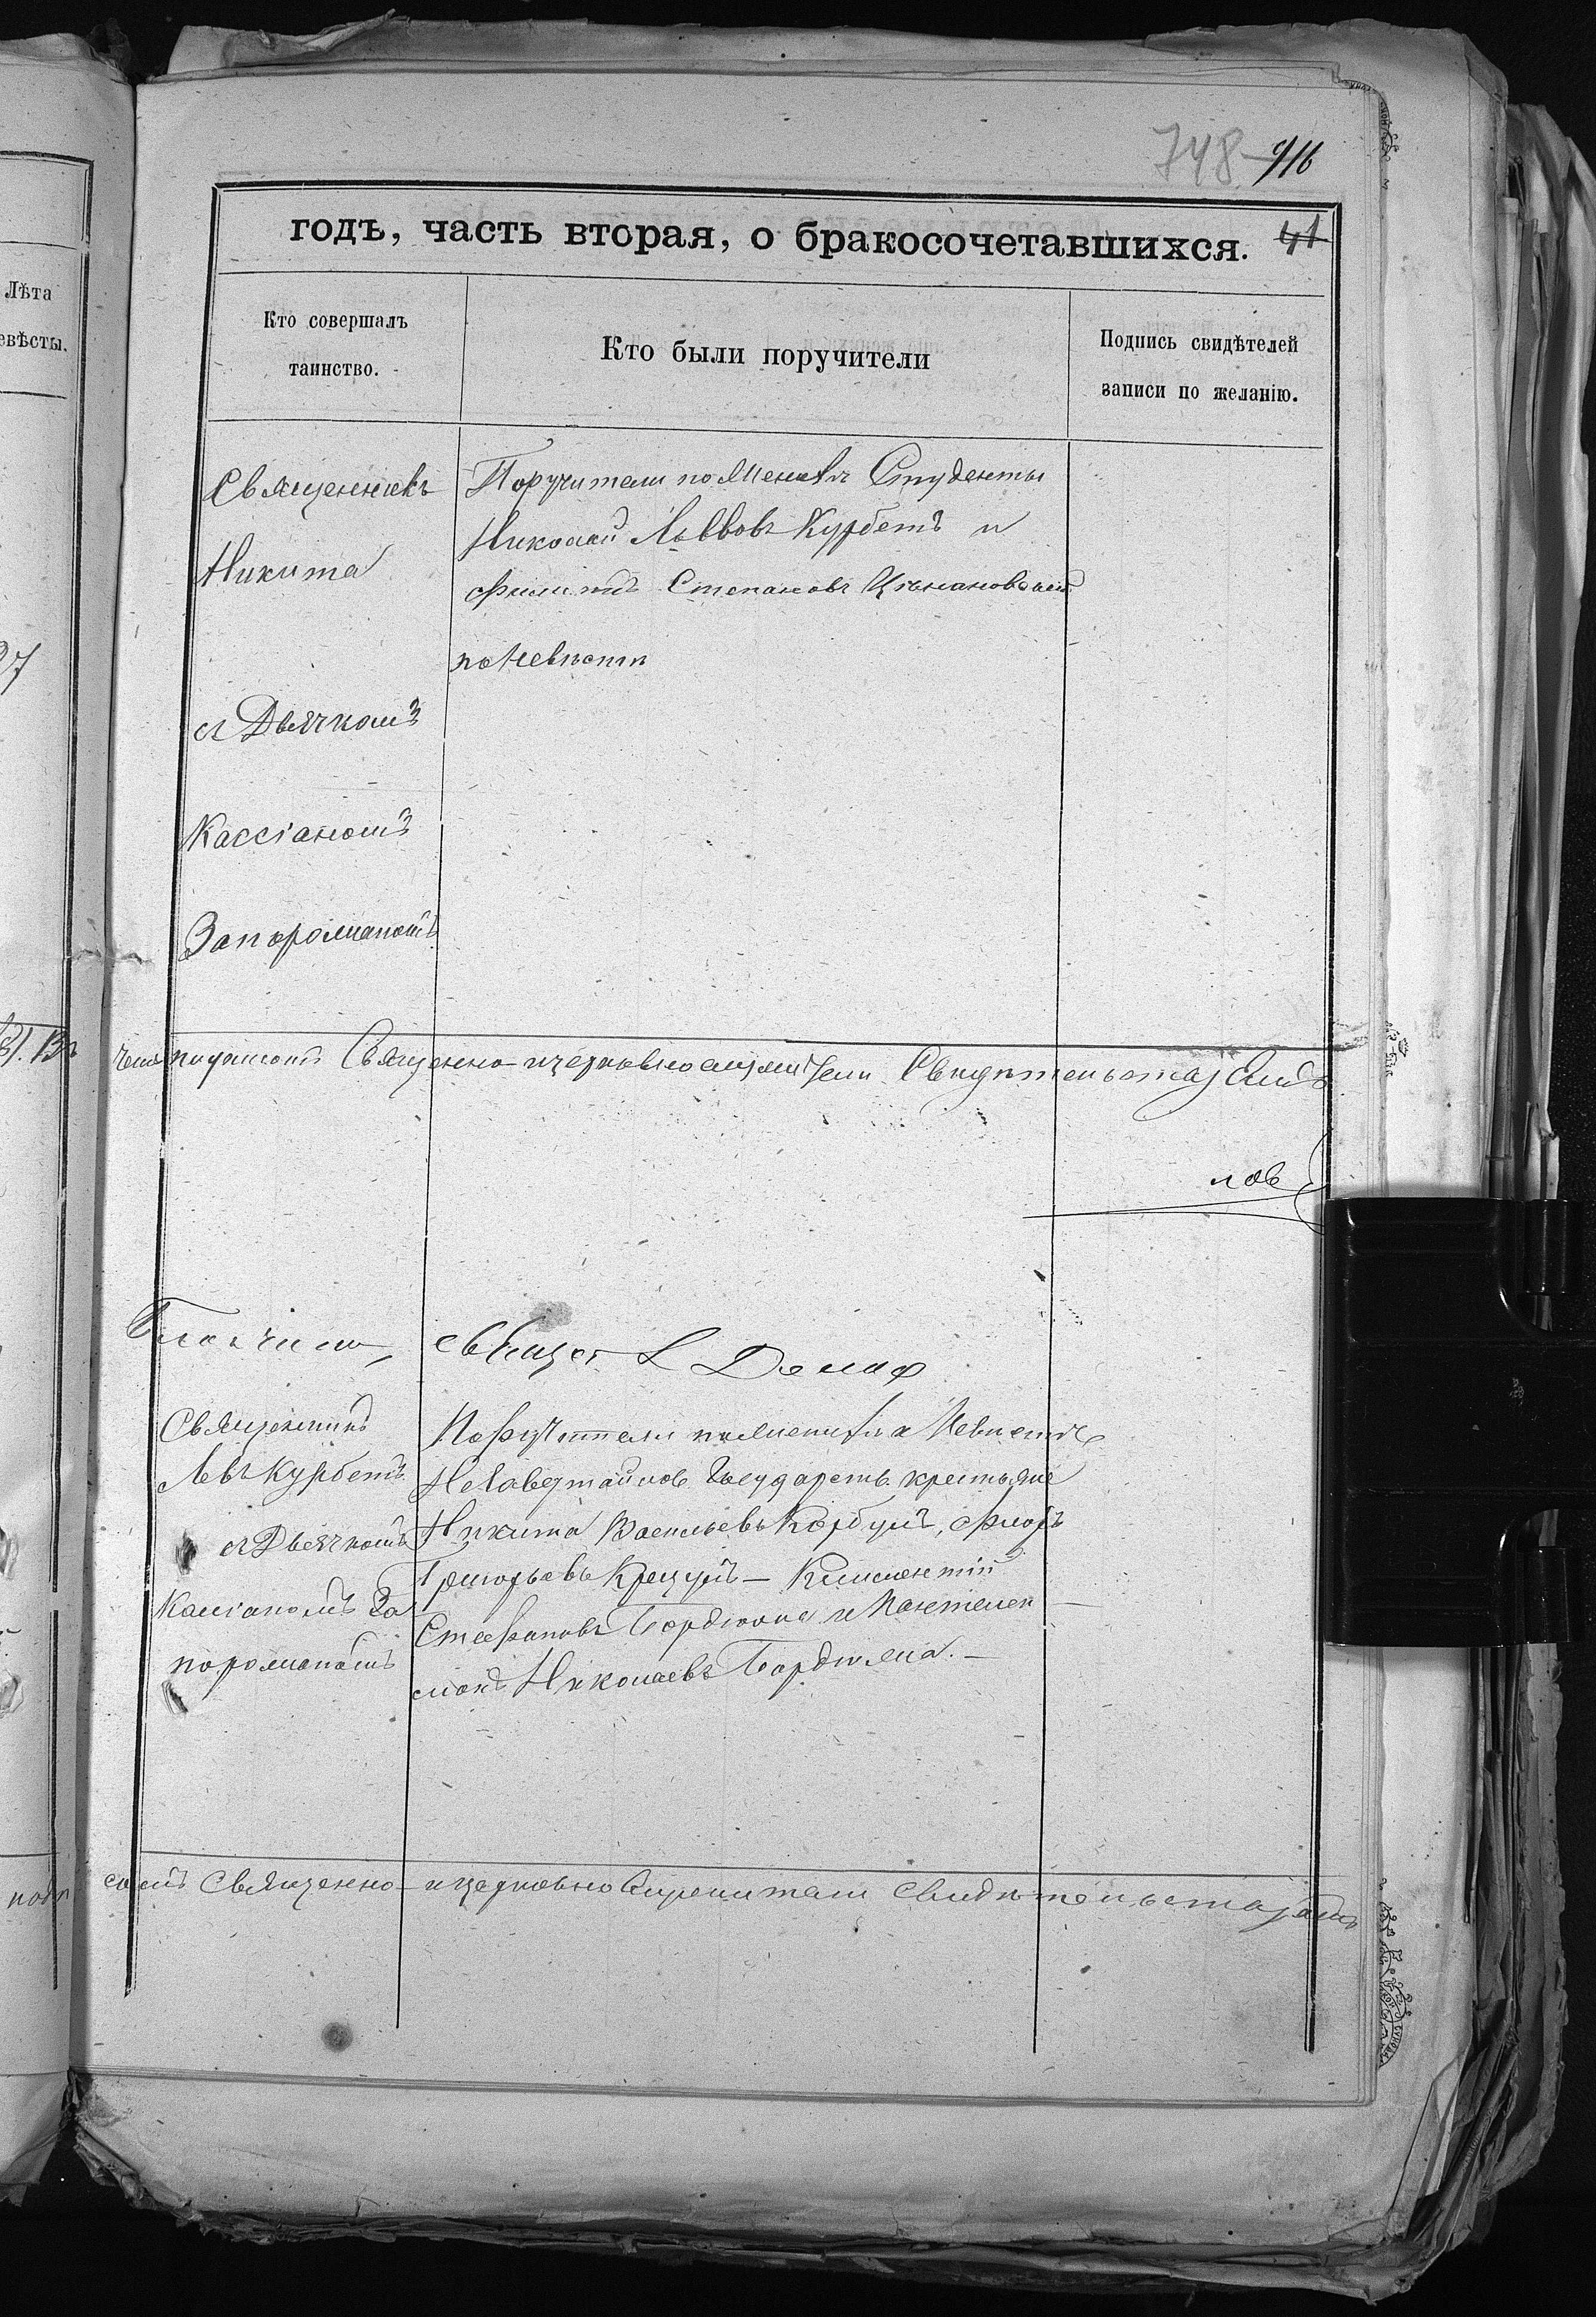 748 916
годъ, часть вторая, о бракосочетавшихся. 41
Лѣта
евѣсты.
Кто совершалъ
таинство.
Кто были поручители
Подпись свидѣтелей
записи по желанію.
Священникъ
Никита
съ Дьячкомъ
Кассіаномъ
Запорожаномъ
Поручители по Женихѣ Студенты
Николай Львовъ Курбетъ и
Филиппъ Степановъ
по Невѣстѣ
27
Священно-церковнослужители Свидѣтельствуемъ
Священникъ
Левъ Курбетъ
съ Дьячкомъ
Кассіаномъ За
порожаномъ
Поручители по Женихѣ и Невѣстѣ
Государств. крестьяне
Никита Васильевъ Корбулъ, Флоръ
Григорьевъ Крецулъ – Климентій
Стефановъ и Пантелей
монъ Николаевъ
Священно-церковнослужители свидѣтельствуемъ